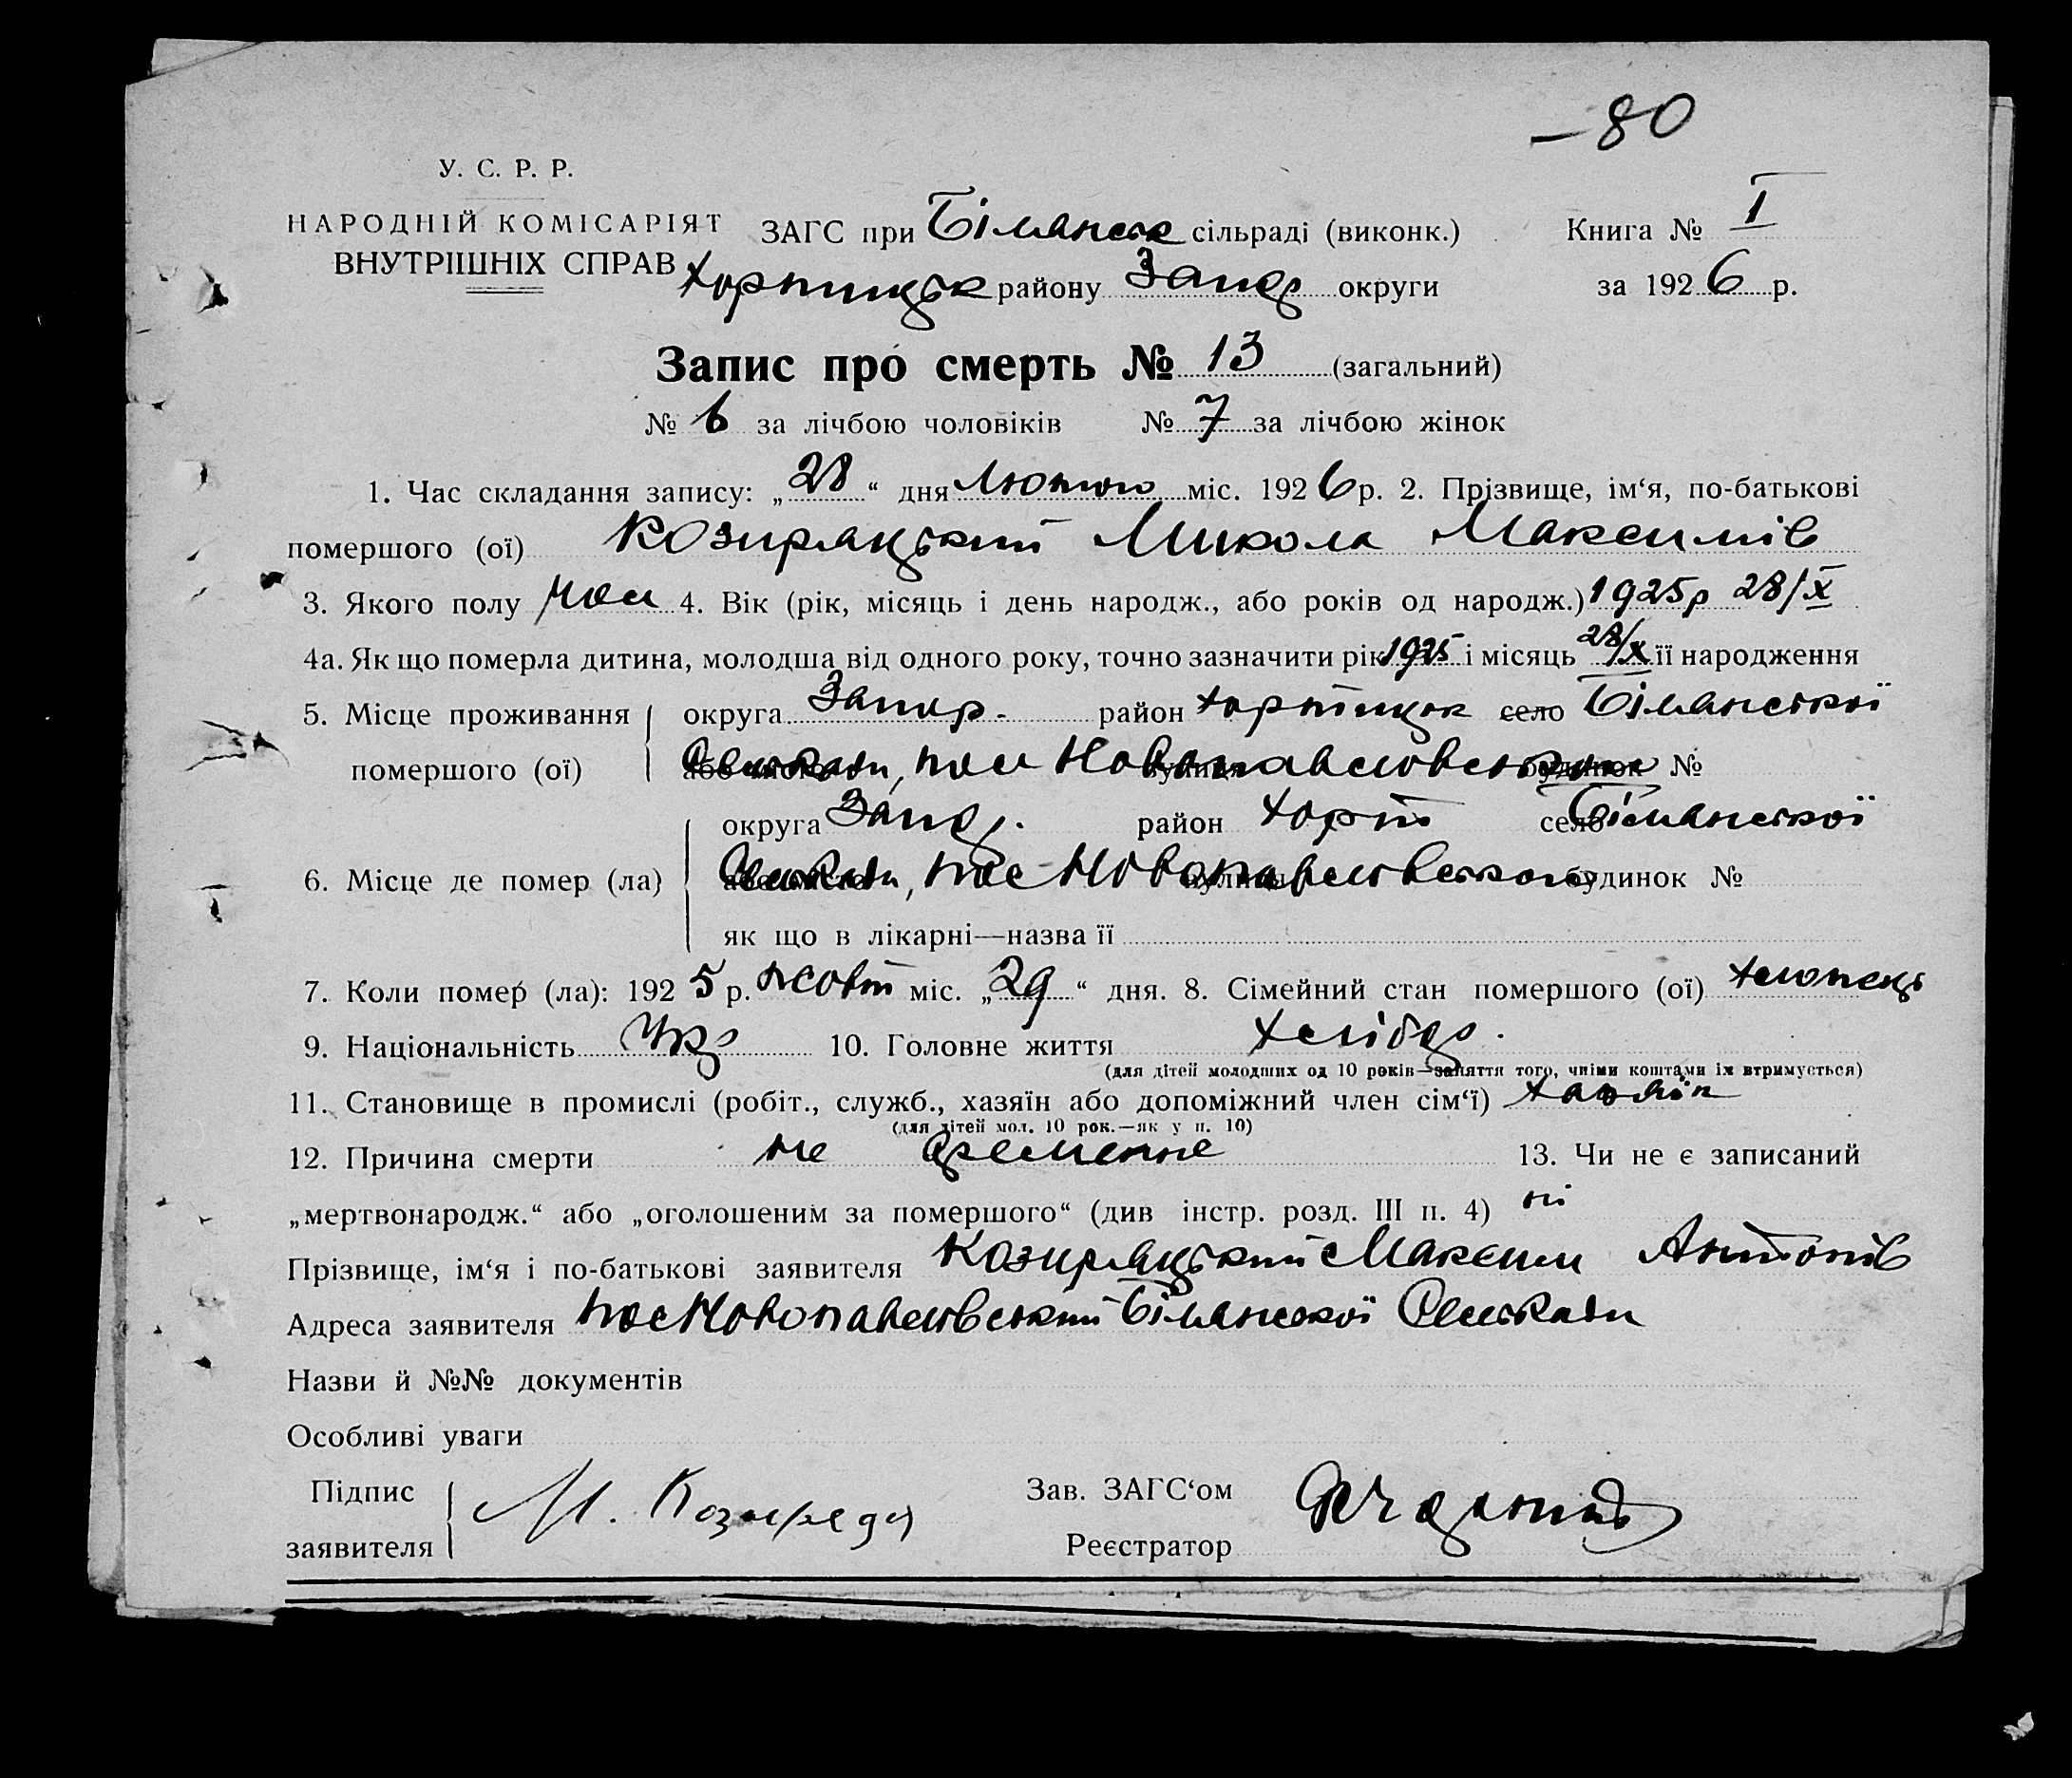 — 80
У. С. Р. Р.
НАРОДНІЙ КОМІСАРІЯТ
ВНУТРІШНІХ СПРАВ
ЗАГС при Біланськ сільраді (виконк.)
Хортицьк району Запор округи
Книга № I
за 1926 р.
Запис про смерть № 13 (загальний)
№ 6 за лічбою чоловіків № 7 за лічбою жінок
1. Час складання запису: „28“ дня Лютого міс. 1926 р. 2. Прізвище, ім‘я, по-батькові
помершого (ої) Козиряцький Микола Максимів
3. Якого полу чол 4. Вік (рік, місяць і день народж., або років од народж.) 1925р 28/X
4а. Як що померла дитина, молодша від одного року, точно зазначити рік 1925 і місяць 28/X її народження
5. Місце проживання округа Запор. район Хортицьк село Біланської
помершого (ої) або місто Сельради, пос Новопавловського вулиця будинок №
округа Запор. район Хорт село Біланської
6. Місце де помер (ла) Сельради, пос Новопавловського будинок №
як що в лікарні—назва її
7. Коли помер (ла): 1925 р. жовт міс. „29“ дня. 8. Сімейний стан помершого (ої) хлопець
9. Національність Укр 10. Головне життя хлібор.
(для дітей молодших од 10 років—заняття того, чиїми коштами їх втримується)
11. Становище в промислі (робіт., служб., хазяїн або допоміжний член сім‘ї) хазяїн
(для дітей мол. 10 рок.—як у п. 10)
12. Причина смерти не 13. Чи не є записаний
„мертвонародж.“ або „оголошеним за помершого“ (див інстр. розд. III п. 4) ні
Прізвище, ім‘я і по-батькові заявителя Козиряцький Максим Антонів
Адреса заявителя пос Новопавловський Біланської Сельради
Назви й №№ документів
Особливі уваги
Підпис
заявителя М.
Зав. ЗАГС‘ом
Реєстратор